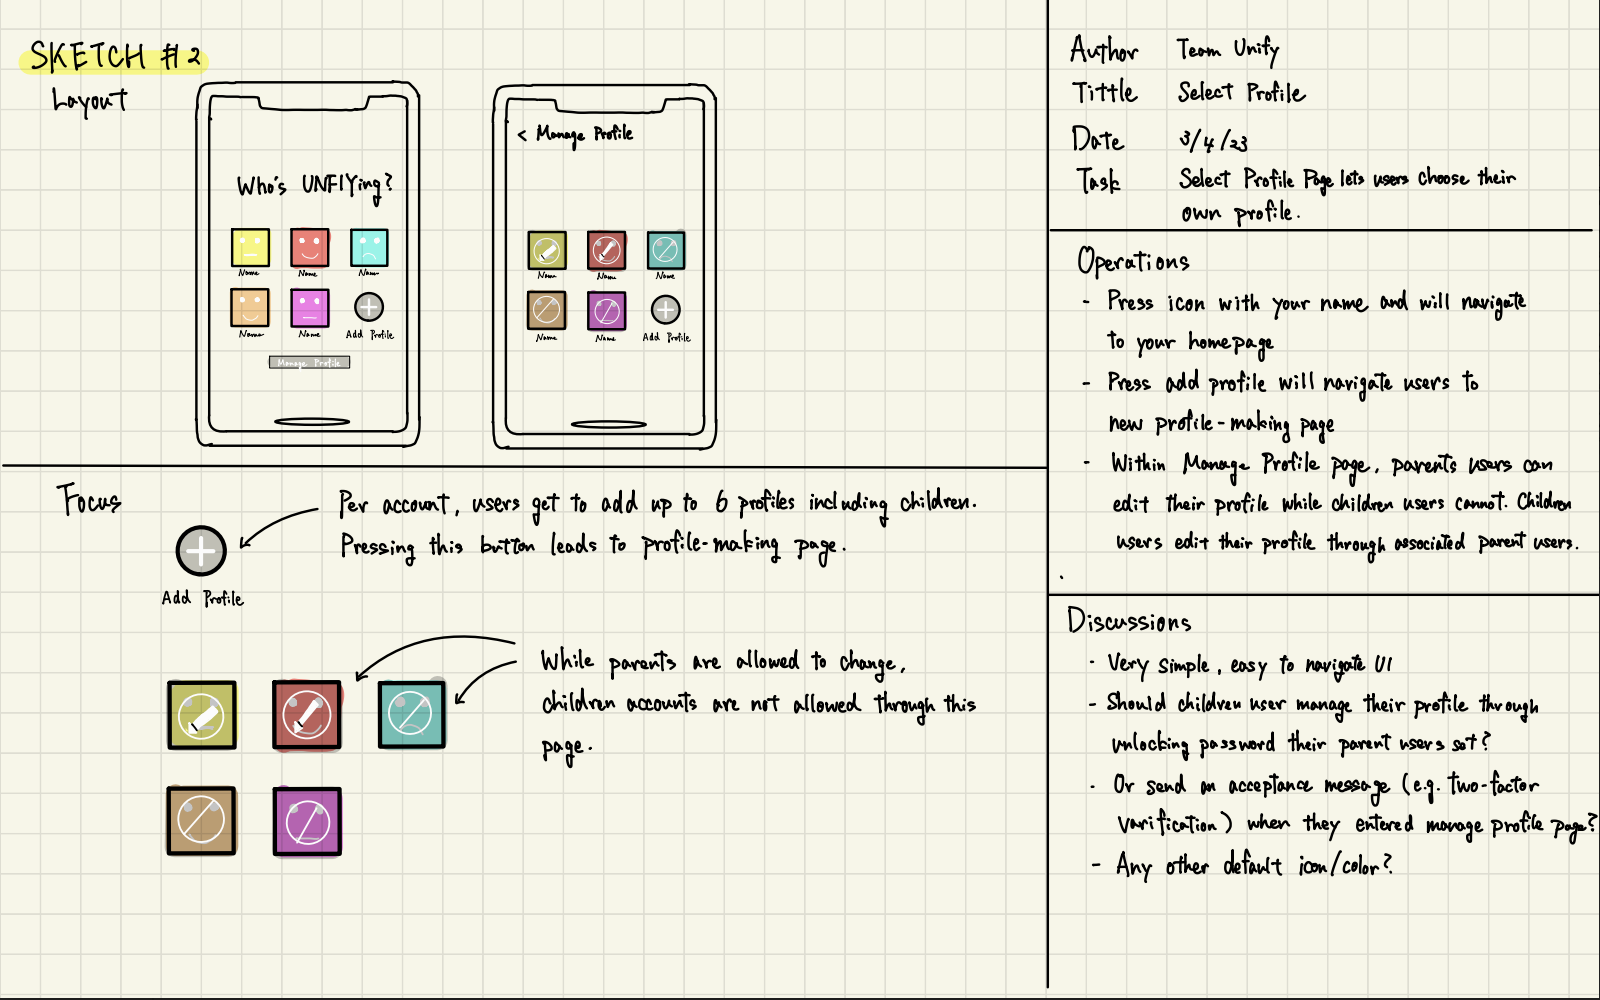 SKETCH #2
Layout
Who's UNFIYing?
Name
Name
Nam
Name
Name
Add Profile
Manage Profile
< Manage Profile
Nam
Name
Name
Name
Name
Add Profile
Focus
Per account, users get to add up to 6 profiles including children.
Pressing this button leads to profile-making page.
Add Profile
While parents are allowed to change,
children accounts are not allowed through this
page.
Author Team Unify
Tittle Select Profile
Date 3/4/23
Task Select Profile Page lets users choose their
own profile.
Operations
- Press icon with your name and will navigate
to your homepage
- Press add profile will navigate users to
new profile-making page
- Within Manage Profile page, parents users can
edit their profile while children users cannot. Children
users edit their profile through associated parent users.
Discussions
- Very simple, easy to navigate UI
- Should children user manage their profile through
unlocking password their parent users set?
- Or send an acceptance message (e.g. two-factor
varification) when they entered manage profile page?
- Any other default icon/color?